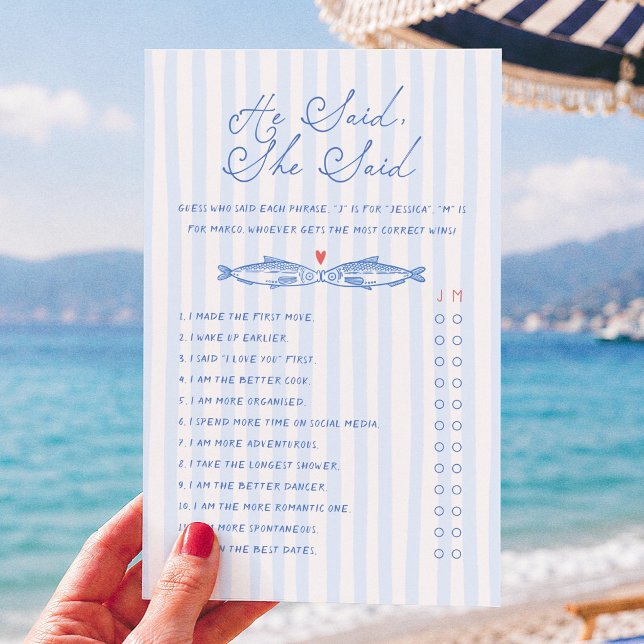 He Said,
She Said
GUESS WHO SAID EACH PHRASE. "J" IS FOR "JESSICA", "M" IS
FOR MARCO. WHOEVER GETS THE MOST CORRECT WINS!
J M
1. I MADE THE FIRST MOVE.
2. I WAKE UP EARLIER.
3. I SAID "I LOVE YOU" FIRST.
4. I AM THE BETTER COOK.
5. I AM MORE ORGANISED.
6. I SPEND MORE TIME ON SOCIAL MEDIA.
7. I AM MORE ADVENTUROUS.
8. I TAKE THE LONGEST SHOWER.
9. I AM THE BETTER DANCER.
10. I AM THE MORE ROMANTIC ONE.
MORE SPONTANEOUS.
THE BEST DATES.